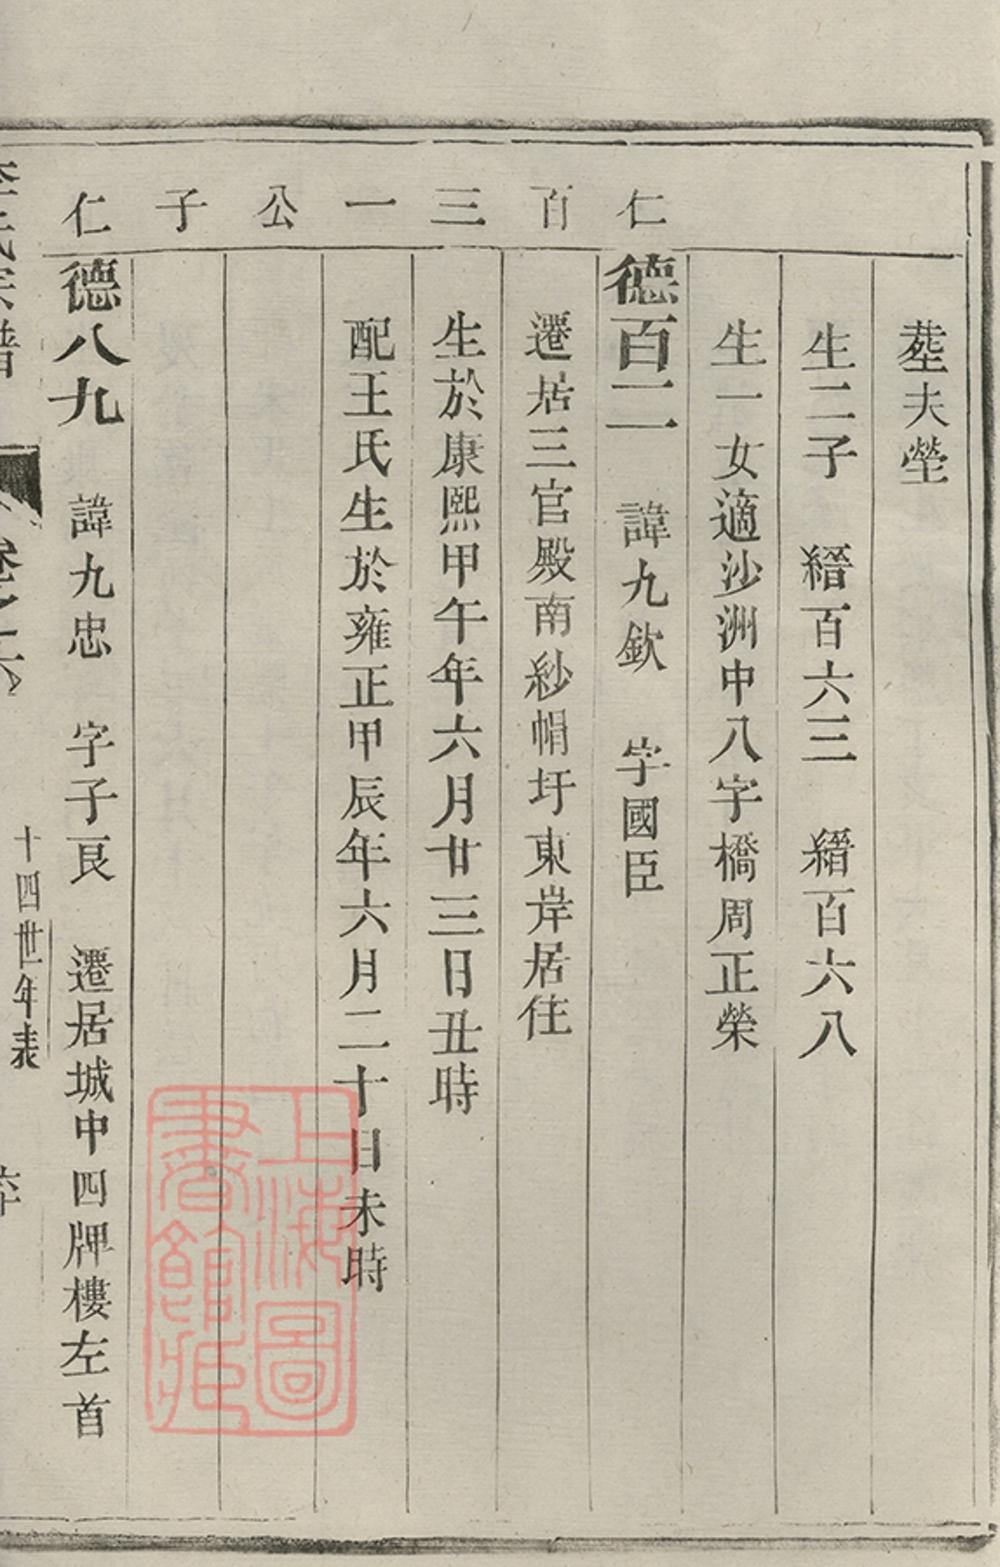 塟夫塋
生二子 縉百六三 縉百六八
生一女適沙洲中八字橋周正榮
仁
德百二 諱九欽 字國臣
百
遷居三官殿南紗帽圩東岸居住
三
生於康熙甲午年六月廿三日丑時
一
配王氏生於雍正甲辰年六月二十日未時
公
子
仁
德八九 諱九忠 字子艮 遷居城中四牌樓左首
李氏宗譜 卷之六 十四世年表
上海圖書館藏